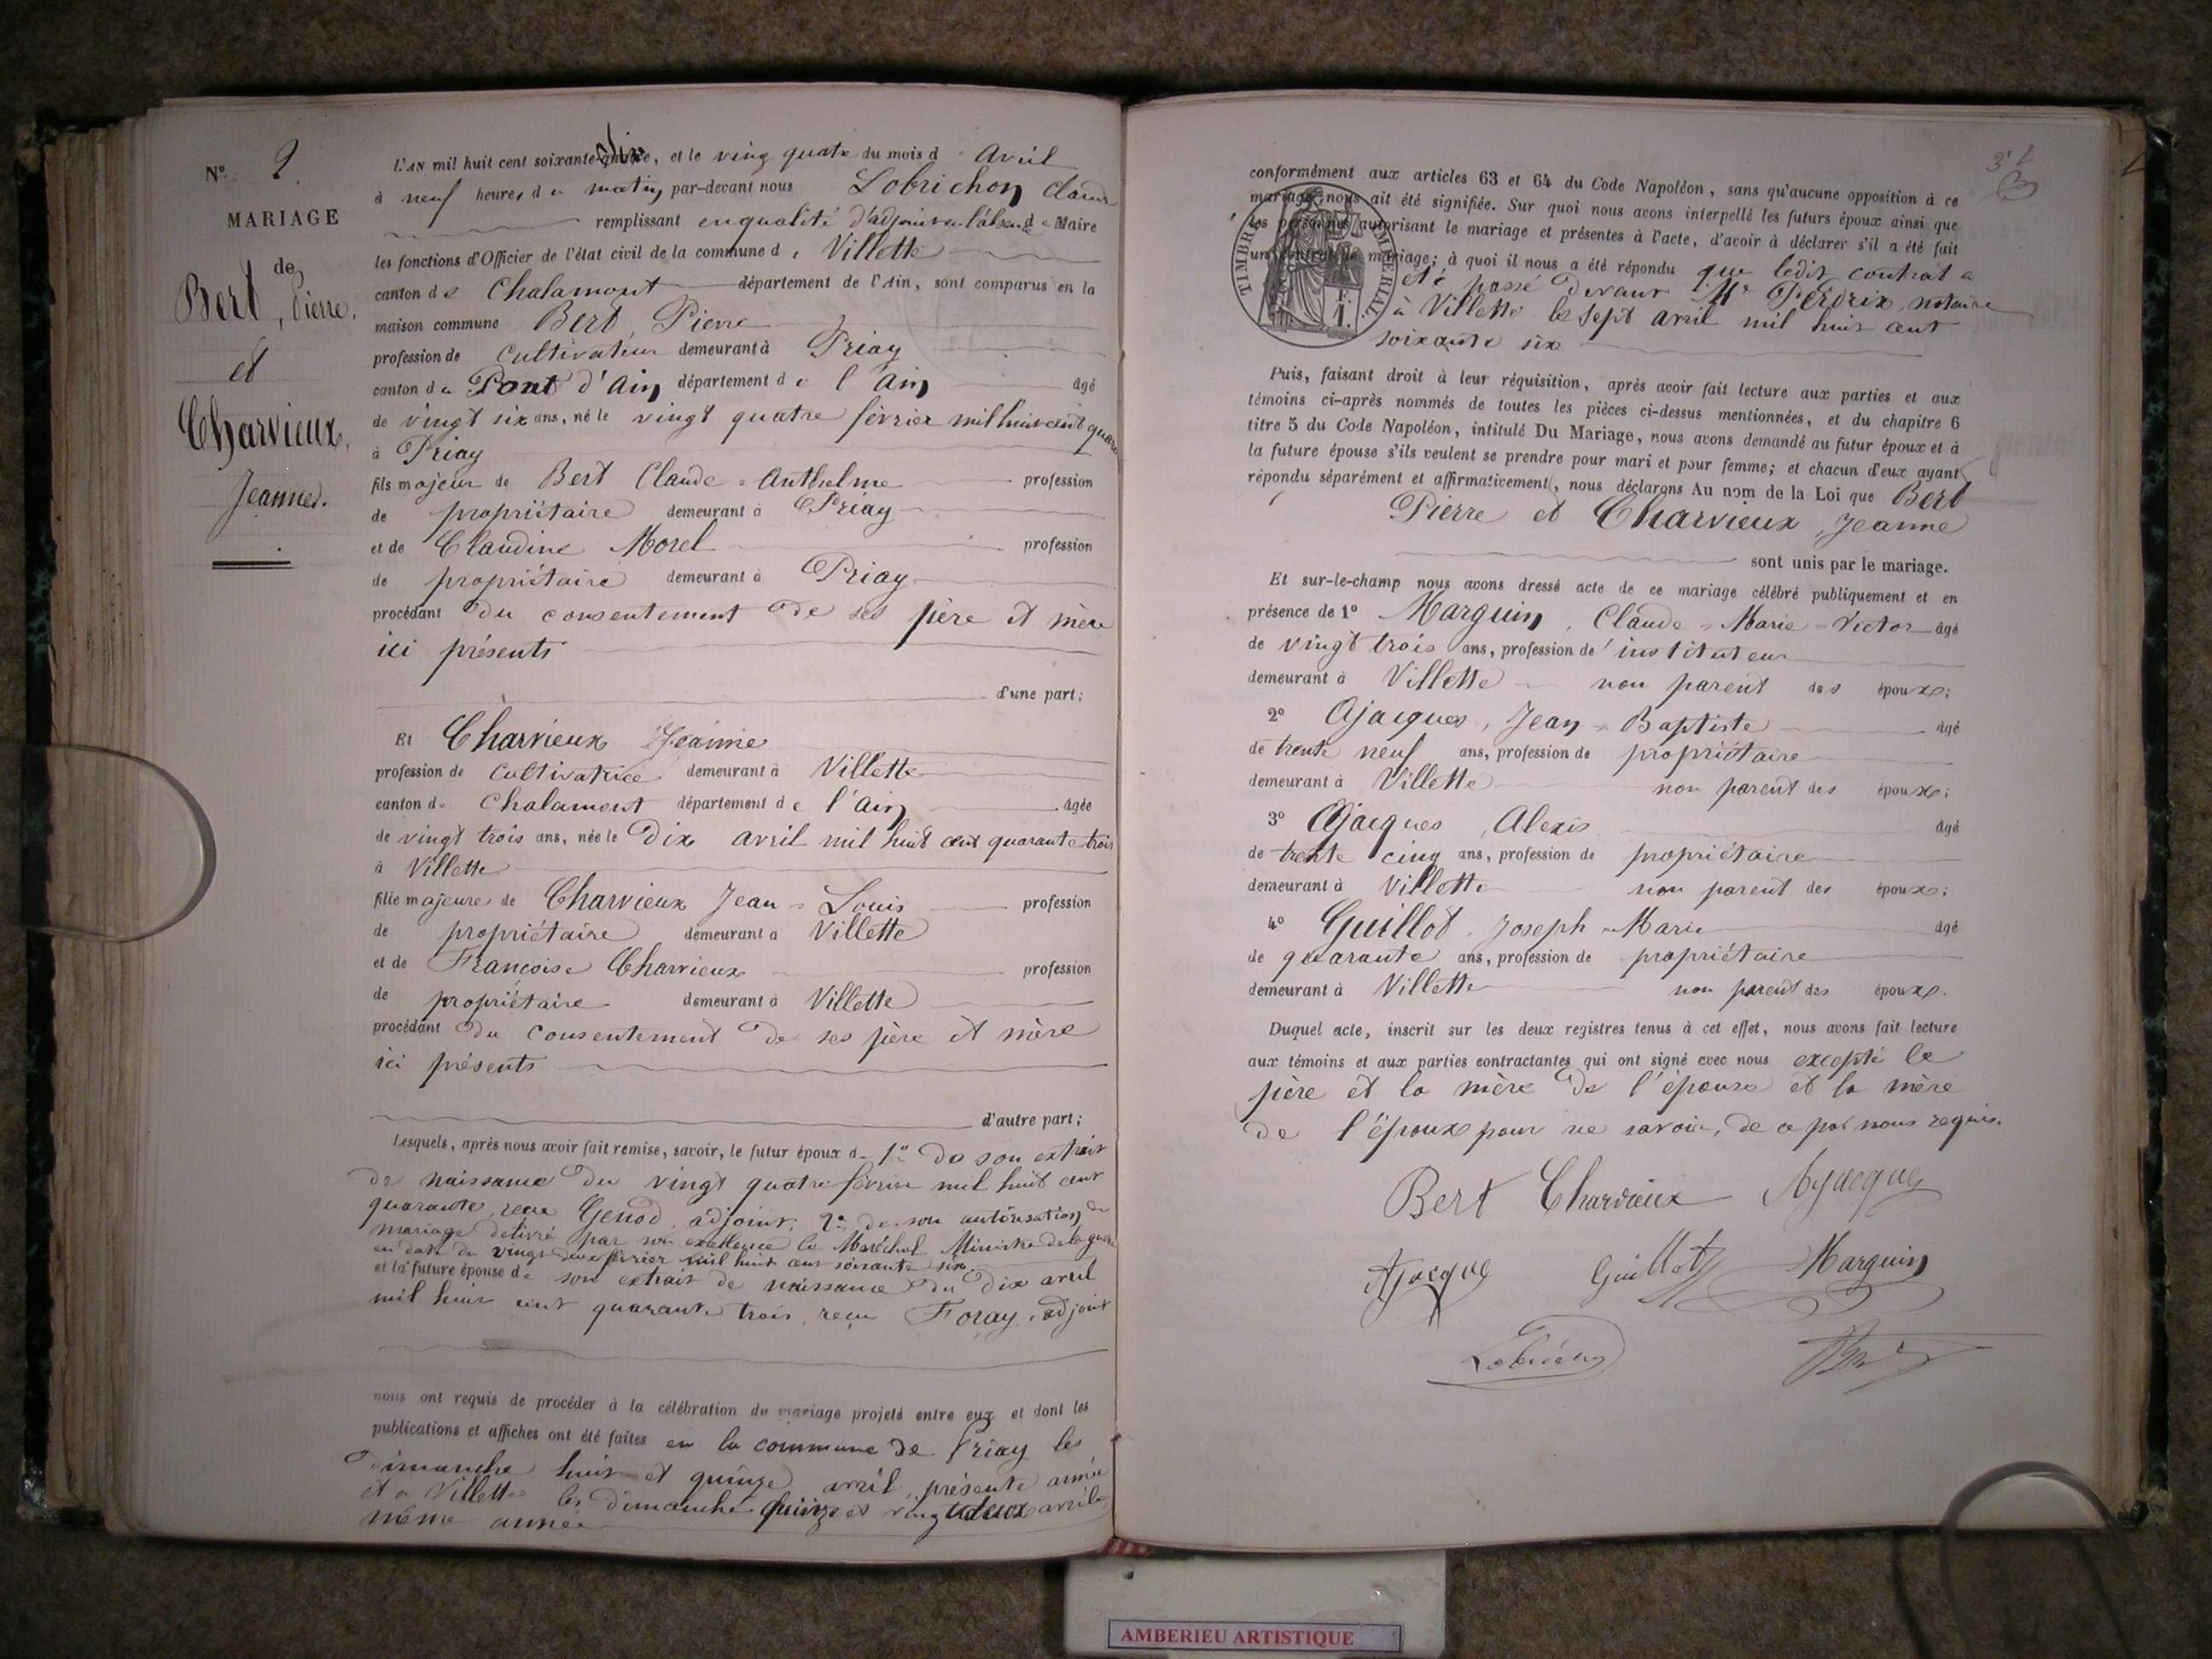 N° 2.
MARIAGE
de
Bert, Pierre.
et
Charvieux,
Jeanne.
L'AN mil huit cent soixante six, et le ving quatre du mois d Avril
à neuf heures du matin par-devant nous Lobrichon Claude
remplissant en qualité d'adjoint en l'absence de Maire
les fonctions d'Officier de l'état civil de la commune de Villette
canton de Chalamont département de l'Ain, sont comparus en la
maison commune Bert, Pierre
profession de Cultivateur demeurant à Priay
canton de Pont d'Ain département de l'Ain âgé
de vingt six ans, né le vingt quatre février mil huit cent quarante
à Priay
fils majeur de Bert Claude = Anthelme profession
de propriétaire demeurant à Priay
et de Claudine Morel profession
de propriétaire demeurant à Priay
procédant du consentement de ses père et mère
ici présents
d'une part;
Et Charvieux Jeanne
profession de Cultivatrice demeurant à Villette
canton de Chalamont département de l'Ain âgée
de vingt trois ans, née le Dix avril mil huit cent quarante trois
à Villette
fille majeure de Charvieux Jean = Louis profession
de propriétaire demeurant à Villette
et de Françoise Charvieux profession
de propriétaire demeurant à Villette
procédant du consentement de ses père et mère
ici présents
d'autre part;
Lesquels, après nous avoir fait remise, savoir, le futur époux de 1° de son extrait
de naissance du vingt quatre février mil huit cent
quarante, reçu Genod, adjoint; 2° de son autorisation de
mariage délivré par son excellence le Maréchal Ministre de la guerre
en date du vingt deux février mil huit cent soixante six.
et la future épouse de son extrait de naissance du dix avril
mil huit cent quarante trois, reçu Foray, adjoint
nous ont requis de procéder à la célébration du mariage projeté entre eux et dont les
publications et affiches ont été faites en la commune de Priay les
Dimanche huit et quinze avril, présente année
et à Villette les dimanche quinze et vingt deux avril
même année
conformément aux articles 63 et 64 du Code Napoléon, sans qu'aucune opposition à ce
mariage nous ait été signifiée. Sur quoi nous avons interpellé les futurs époux ainsi que
les personnes autorisant le mariage et présentes à l'acte, d'avoir à déclarer s'il a été fait
un contrat de mariage; à quoi il nous a été répondu que ledit contrat a
été passé devant Me Perdrix, notaire
à Villette le sept avril mil huit cent
soixante six
TIMBRE IMPERIAL
Puis, faisant droit à leur réquisition, après avoir fait lecture aux parties et aux
témoins ci-après nommés de toutes les pièces ci-dessus mentionnées, et du chapitre 6
titre 5 du Code Napoléon, intitulé Du Mariage, nous avons demandé au futur époux et à
la future épouse s'ils veulent se prendre pour mari et pour femme; et chacun d'eux ayant
répondu séparément et affirmativement, nous déclarons Au nom de la Loi que Bert
Pierre et Charvieux, Jeanne
sont unis par le mariage.
Et sur-le-champ nous avons dressé acte de ce mariage célébré publiquement et en
présence de 1° Marguin, Claude = Marie = Victor âgé
de vingt trois ans, profession de instituteur
demeurant à Villette non parent des époux;
2° Ajacques, Jean = Baptiste âgé
de trente neuf ans, profession de propriétaire
demeurant à Villette non parent des époux;
3° Ajacques, Alexis âgé
de trente cinq ans, profession de propriétaire
demeurant à Villette non parent des époux;
4° Guillot, Joseph = Marie âgé
de quarante ans, profession de propriétaire
demeurant à Villette non parent des époux.
Duquel acte, inscrit sur les deux registres tenus à cet effet, nous avons fait lecture
aux témoins et aux parties contractantes qui ont signé avec nous excepté le
père et la mère de l'épouse et la mère
de l'époux pour ne savoir, de ce par nous requis.
Bert Charvieux Ajacque
Ajacque Guillot Marguin
Lobrichon
AMBERIEU ARTISTIQUE